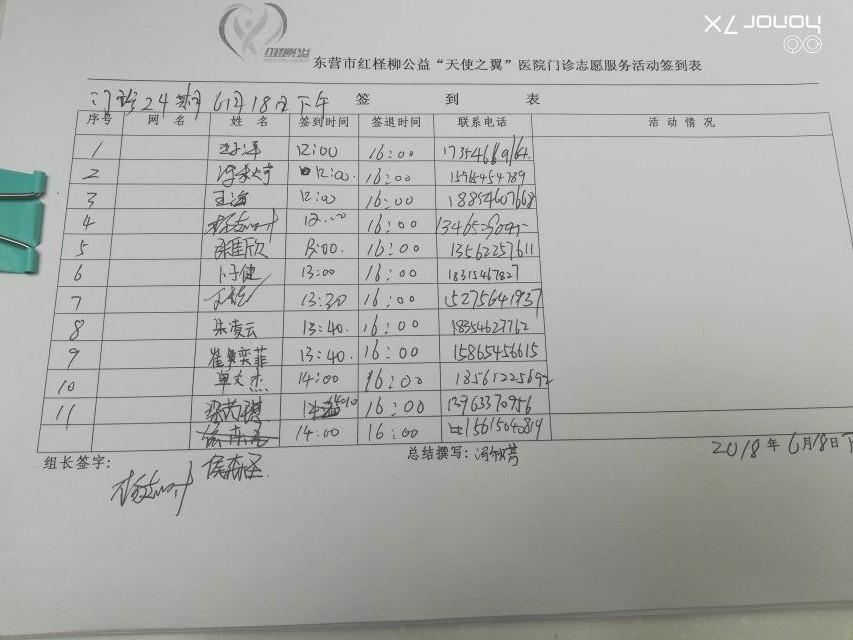 honor 7X
红柽柳公益
东营市红柽柳公益“天使之翼”医院门诊志愿服务活动签到表
门诊24期 6月18日下午 签 到 表
序号 网 名 姓 名 签到时间 签退时间 联系电话 活 动 情 况
1 12:00 16:00
2 12:00. 16:00 15965454789
3 王海 12:00 16:00 18854607668
4 12:00 16:00
5 张匡欣 13:00. 16:00 13562257611
6 卜子健 13:00 16:00 18315467827
7 13:30 16:00 15275641937
8 朱凌云 13:40. 16:00 18354627762
9 崔奕菲 13:40. 16:00 15865456615
10 单文杰 14:00 16:00
11 16:00 13963370956
14:00 16:00 15615648819
组长签字: 总结撰写: 2018年6月18日下